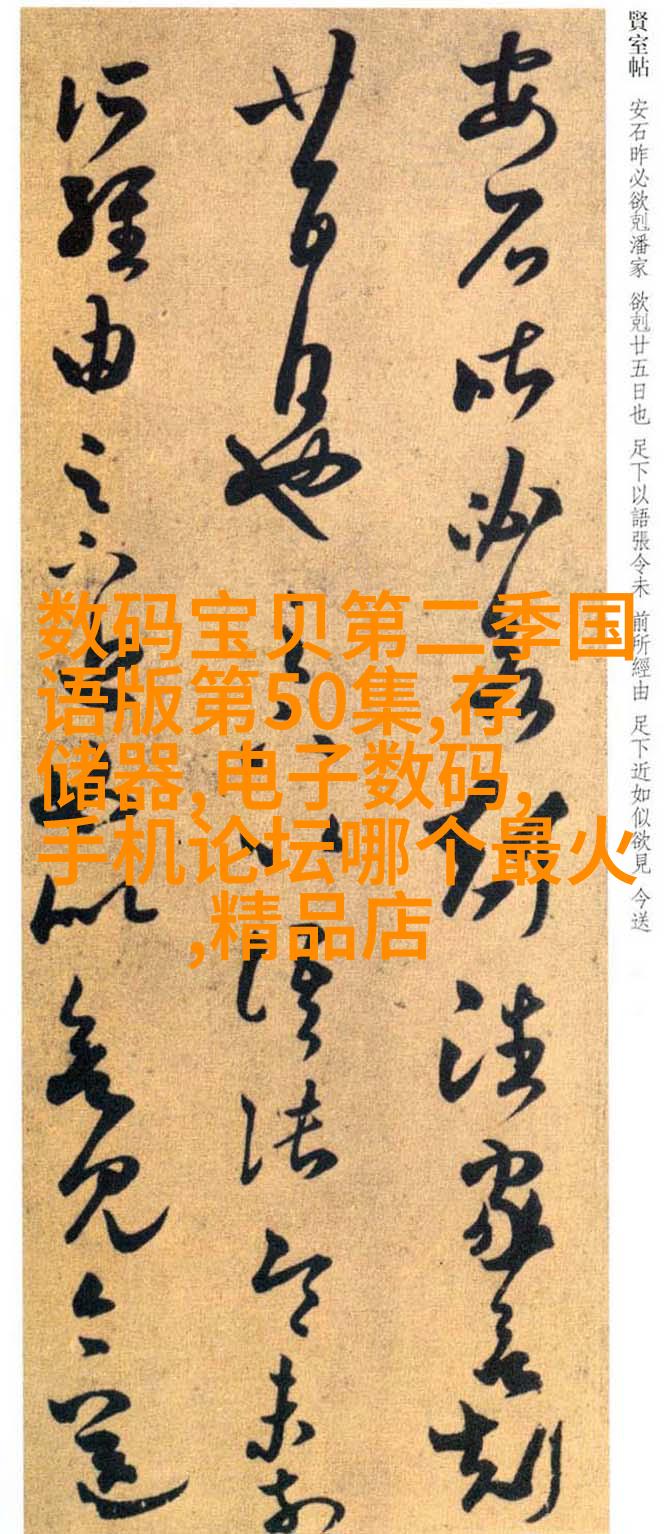 賢室帖 安石昨必欲剋潘家 欲剋廿五日也 足下以語張令未 前所經由 足下近如似欲見 今送
安石昨必欲剋潘家欲剋
廿五日也足下以語張令未前
所經由足下近如似欲見今送
数码宝贝第二季国
语版第50集,存
储器,电子数码,
手机论坛哪个最火
,精品店